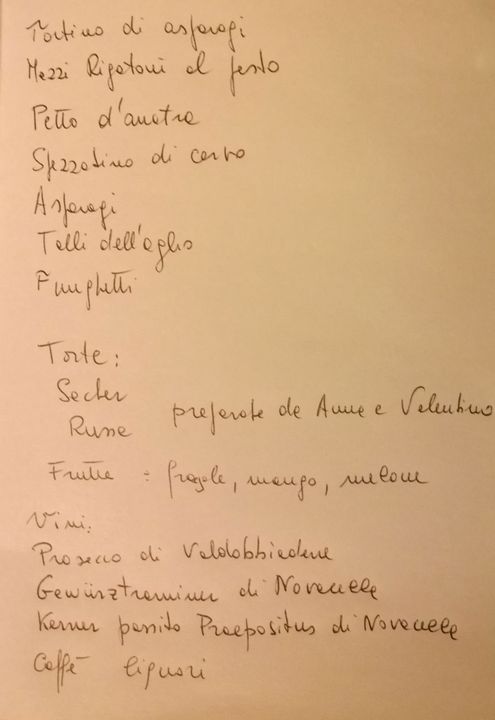 Tortino di asparagi
Mezzi Rigatoni al pesto
Petto d'anatra
Spezzatino di cervo
Asparagi
Talli dell'aglio
Funghetti
Torte:
Sacher
Russa
preparate da Anna e Valentino
Frutta: fragole, mango, melone
Vini:
Prosecco di Valdobbiadene
Gewürztraminer di Novacella
Kerner passito Praepositus di Novacella
Caffè liquori